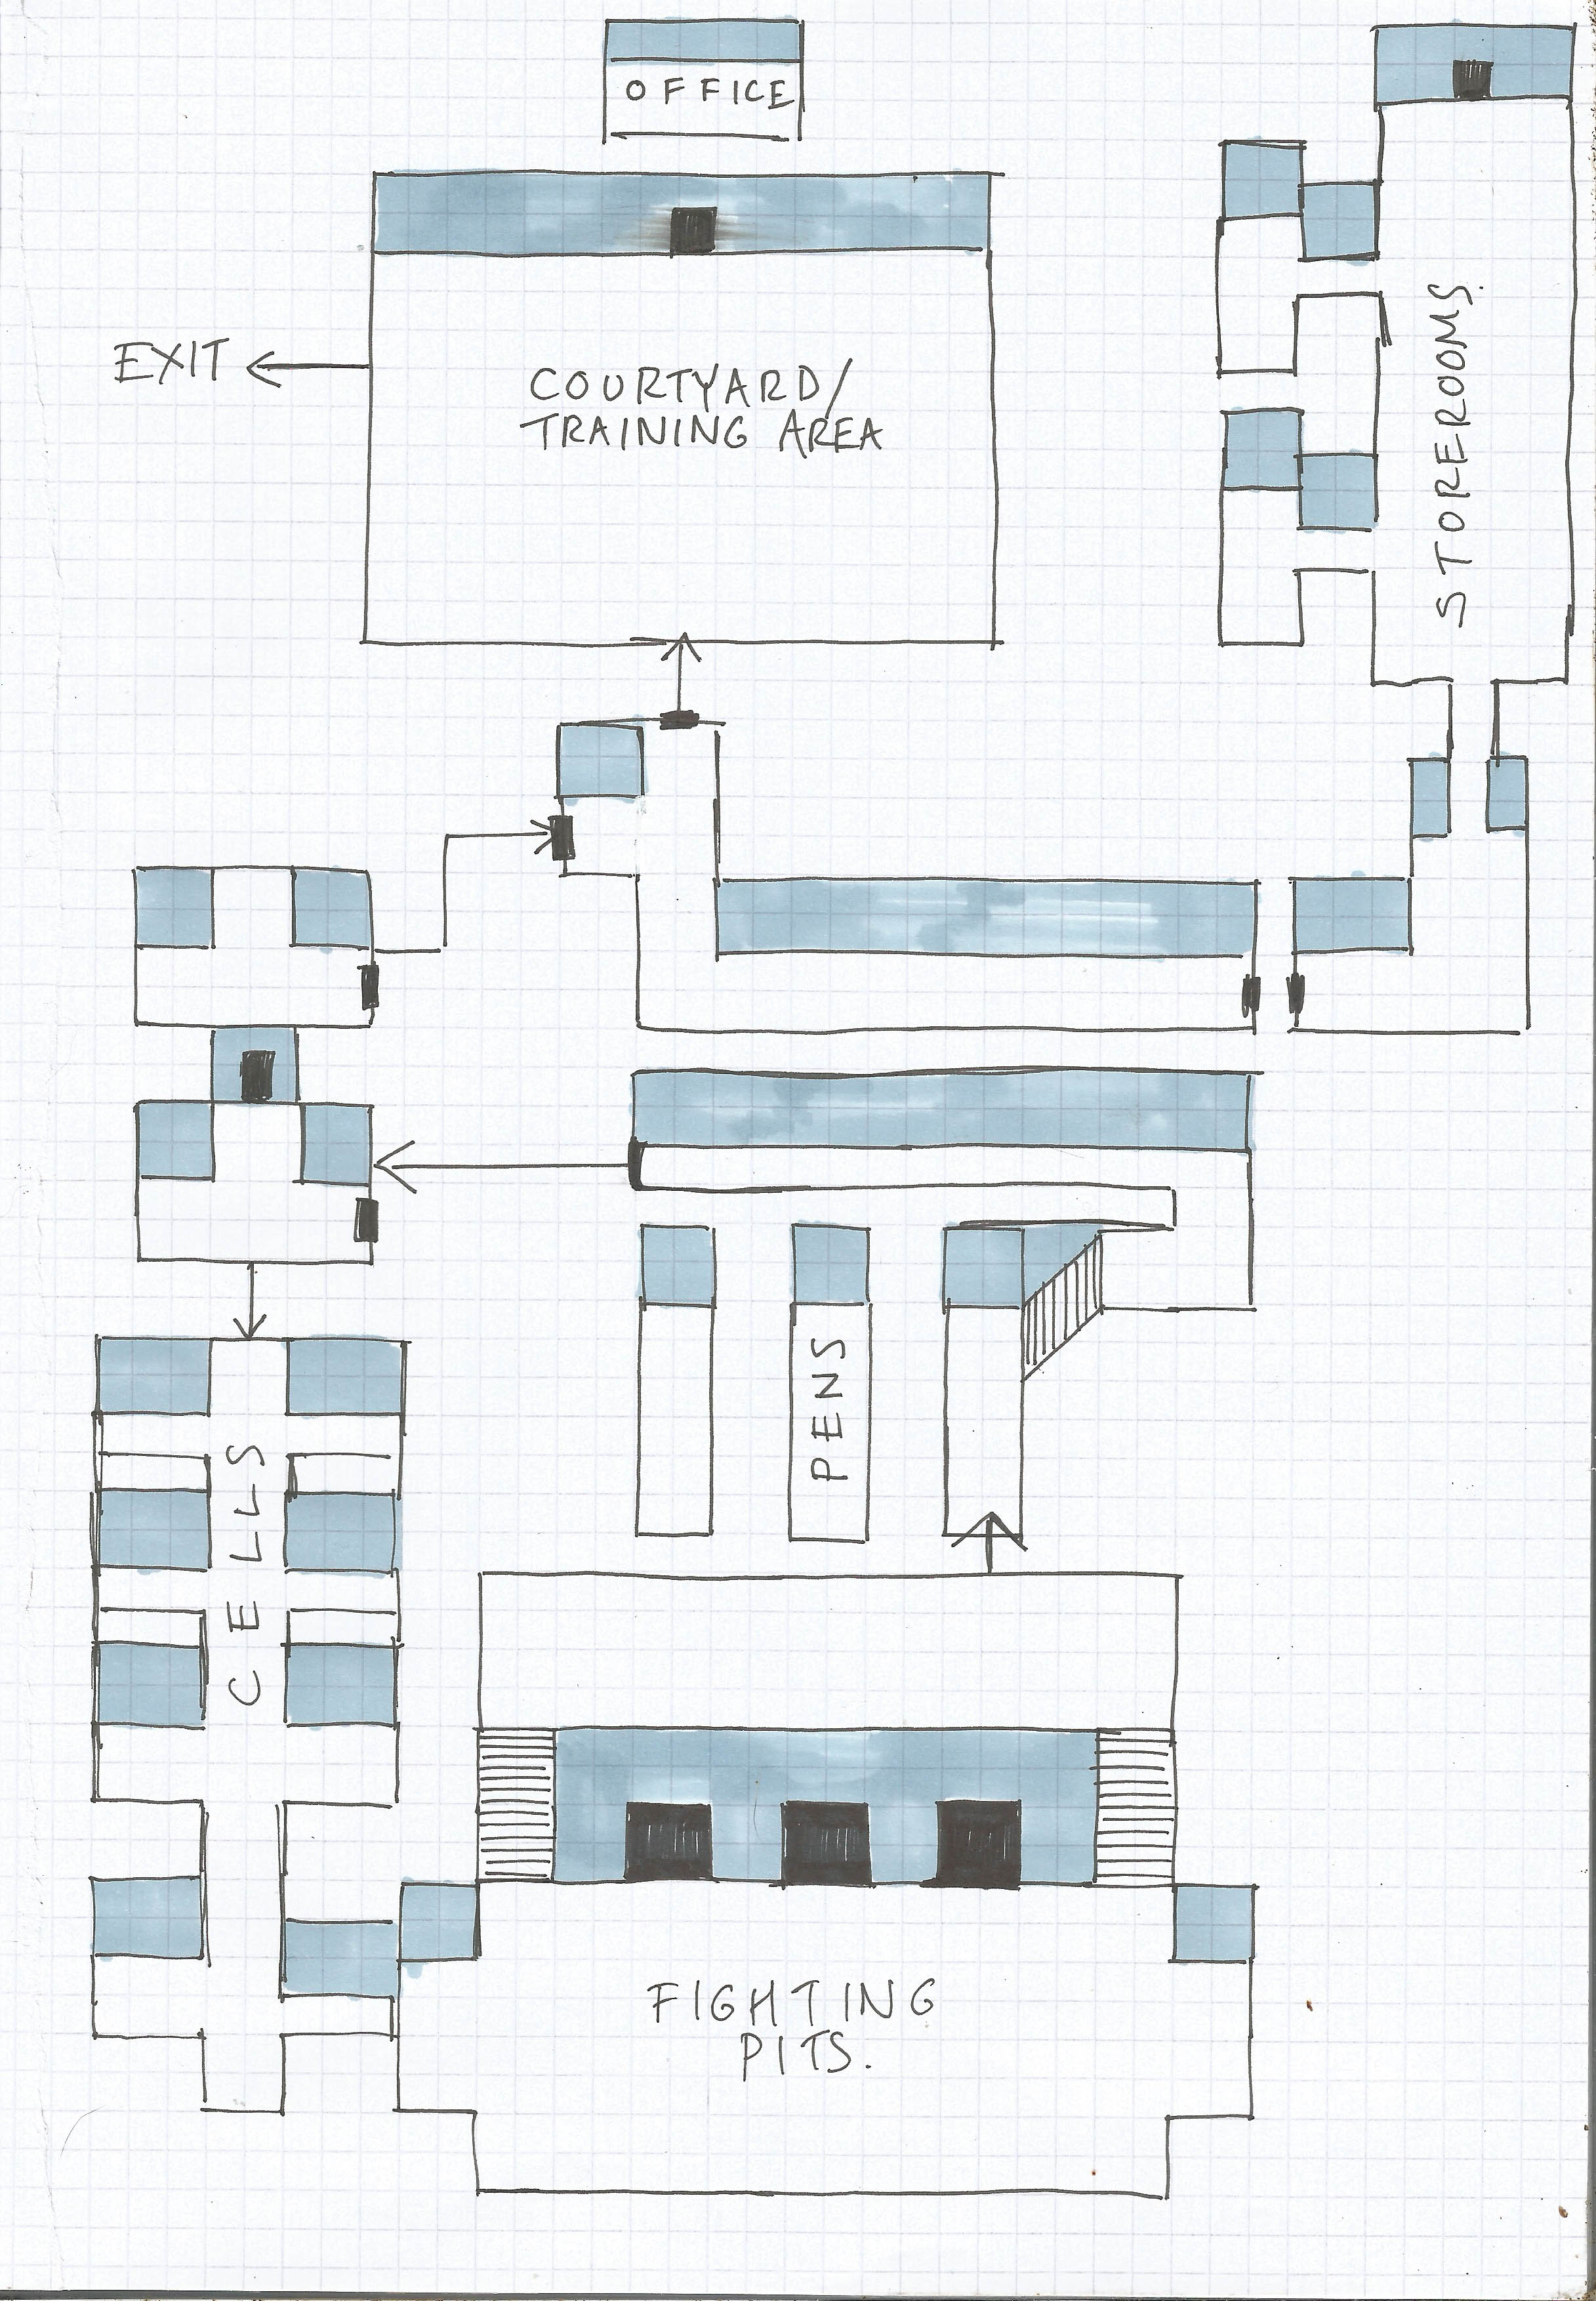 OFFICE
EXIT
COURTYARD/
TRAINING AREA
STOREROOMS.
PENS
CELLS
FIGHTING
PITS.